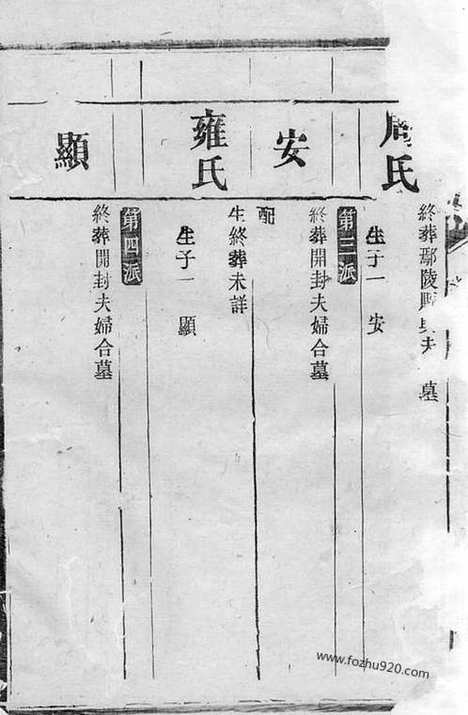 周氏
終葬鄢陵縣與夫 墓
生子一 安
第三派
安
終葬開封夫婦合墓
配
雍氏
生終葬未詳
生子一 顯
第四派
顯
終葬開封夫婦合墓
www.fozhu920.com